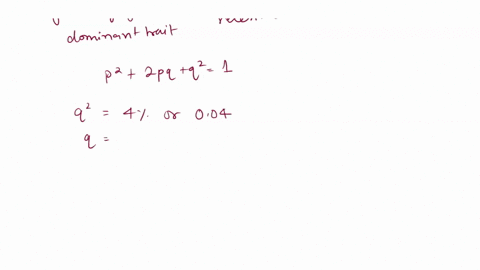 dominant trait
p² + 2pq + q² = 1
q² = 4% or 0.04
q =